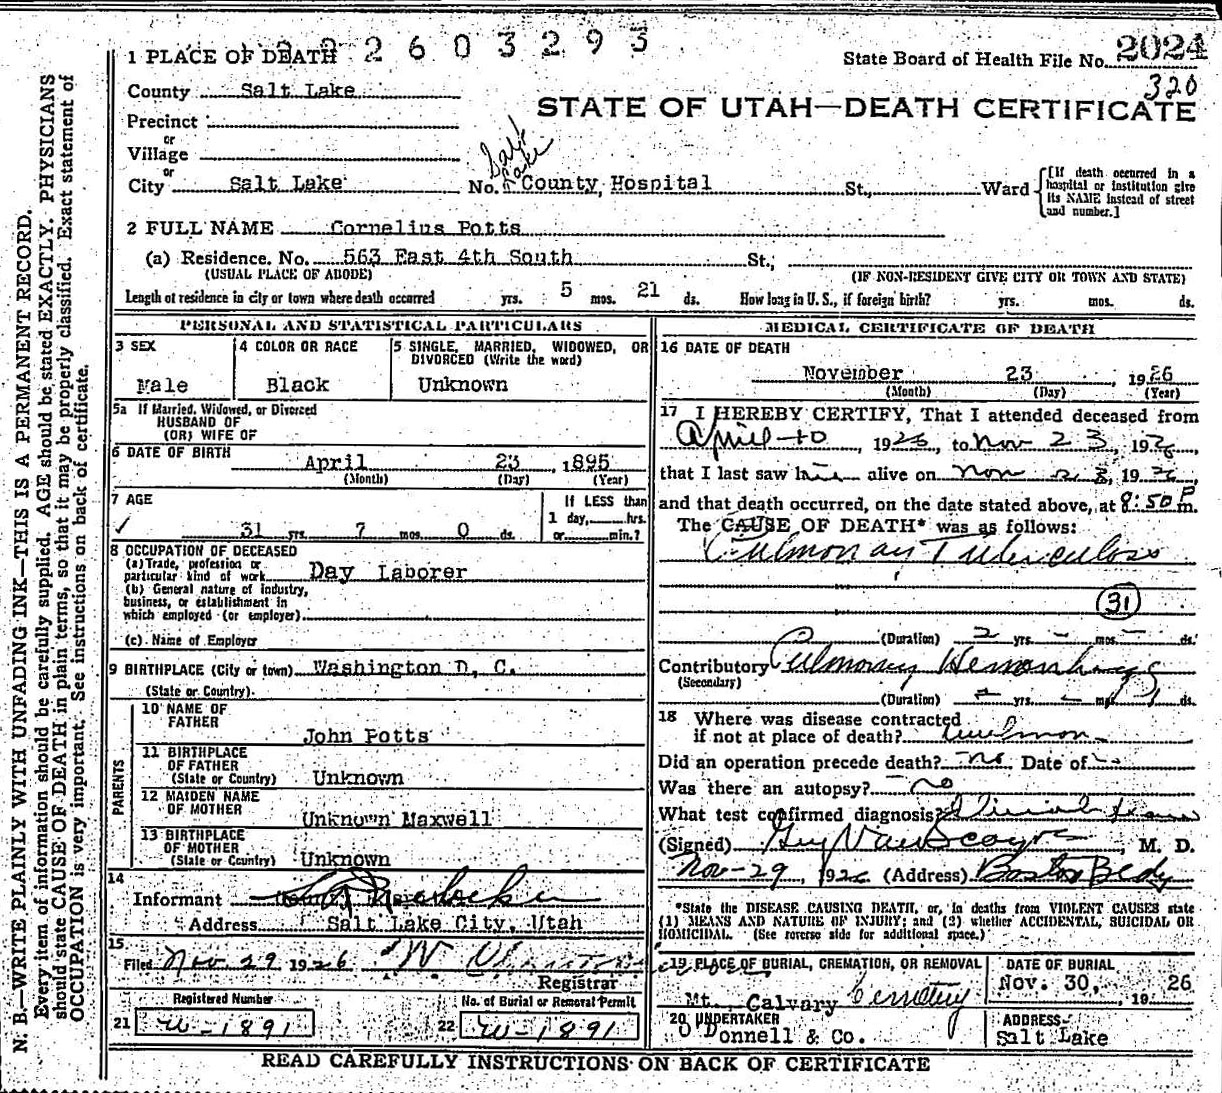 2 2 2 6 0 3 2 9 3
1 PLACE OF DEATH
State Board of Health File No. 2024
320
County Salt Lake
STATE OF UTAH—DEATH CERTIFICATE
Precinct
or
Village
or
City Salt Lake No. Salt Lake County Hospital St., Ward
[If death occurred in a hospital or institution give its NAME instead of street and number.]
2 FULL NAME Cornelius Potts
(a) Residence. No. 563 East 4th South St.,
(USUAL PLACE OF ABODE) (IF NON-RESIDENT GIVE CITY OR TOWN AND STATE)
Length of residence in city or town where death occurred yrs. 5 mos. 21 ds. How long in U. S., if foreign birth? yrs. mos. ds.
PERSONAL AND STATISTICAL PARTICULARS
3 SEX
Male
4 COLOR OR RACE
Black
5 SINGLE, MARRIED, WIDOWED, OR
DIVORCED (Write the word)
Unknown
5a If Married, Widowed, or Divorced
HUSBAND OF
(OR) WIFE OF
6 DATE OF BIRTH April 23, 1895
(Month) (Day) (Year)
7 AGE
31 yrs. 7 mos. 0 ds.
If LESS than
1 day, hrs.
or min.?
8 OCCUPATION OF DECEASED
(a) Trade, profession or
particular kind of work Day Laborer
(b) General nature of industry,
business, or establishment in
which employed (or employer)
(c) Name of Employer
9 BIRTHPLACE (City or town) Washington D, C.
(State or Country)
PARENTS
10 NAME OF
FATHER
John Potts
11 BIRTHPLACE
OF FATHER
(State or Country) Unknown
12 MAIDEN NAME
OF MOTHER
Unknown Maxwell
13 BIRTHPLACE
OF MOTHER
(State or Country) Unknown
14
Informant
Address Salt Lake City, Utah
15
Filed Nov. 29 1926
Registrar
Registered Number
21 W-1891
No. of Burial or Removal Permit
22 W-1891
MEDICAL CERTIFICATE OF DEATH
16 DATE OF DEATH
November 23, 1926
(Month) (Day) (Year)
17 I HEREBY CERTIFY, That I attended deceased from
April 10, 1926, to Nov 23, 1926,
that I last saw him alive on Nov 23, 1926,
and that death occurred, on the date stated above, at 8:50 P m.
The CAUSE OF DEATH* was as follows:
Pulmonary Tuberculosis
31
(Duration) 2 yrs. - mos. - ds.
Contributory Pulmonary Hemorrhage
(Secondary)
(Duration) - yrs. - mos. ds.
18 Where was disease contracted
if not at place of death? Unknown
Did an operation precede death? no. Date of --
Was there an autopsy? no
What test confirmed diagnosis?
(Signed) Guy Van Scoyoc, M. D.
Nov-29, 1926 (Address) Boston Bldg
*State the DISEASE CAUSING DEATH, or, in deaths from VIOLENT CAUSES state
(1) MEANS AND NATURE OF INJURY; and (2) whether ACCIDENTAL, SUICIDAL OR
HOMICIDAL. (See reverse side for additional space.)
19 PLACE OF BURIAL, CREMATION, OR REMOVAL
Mt. Calvary Cemetery
DATE OF BURIAL
Nov. 30, 1926
20 UNDERTAKER
O'Donnell & Co.
ADDRESS
Salt Lake
READ CAREFULLY INSTRUCTIONS ON BACK OF CERTIFICATE
N. B.—WRITE PLAINLY WITH UNFADING INK—THIS IS A PERMANENT RECORD.
Every item of information should be carefully supplied. AGE should be stated EXACTLY. PHYSICIANS
should state CAUSE OF DEATH in plain terms, so that it may be properly classified. Exact statement of
OCCUPATION is very important. See instructions on back of certificate.